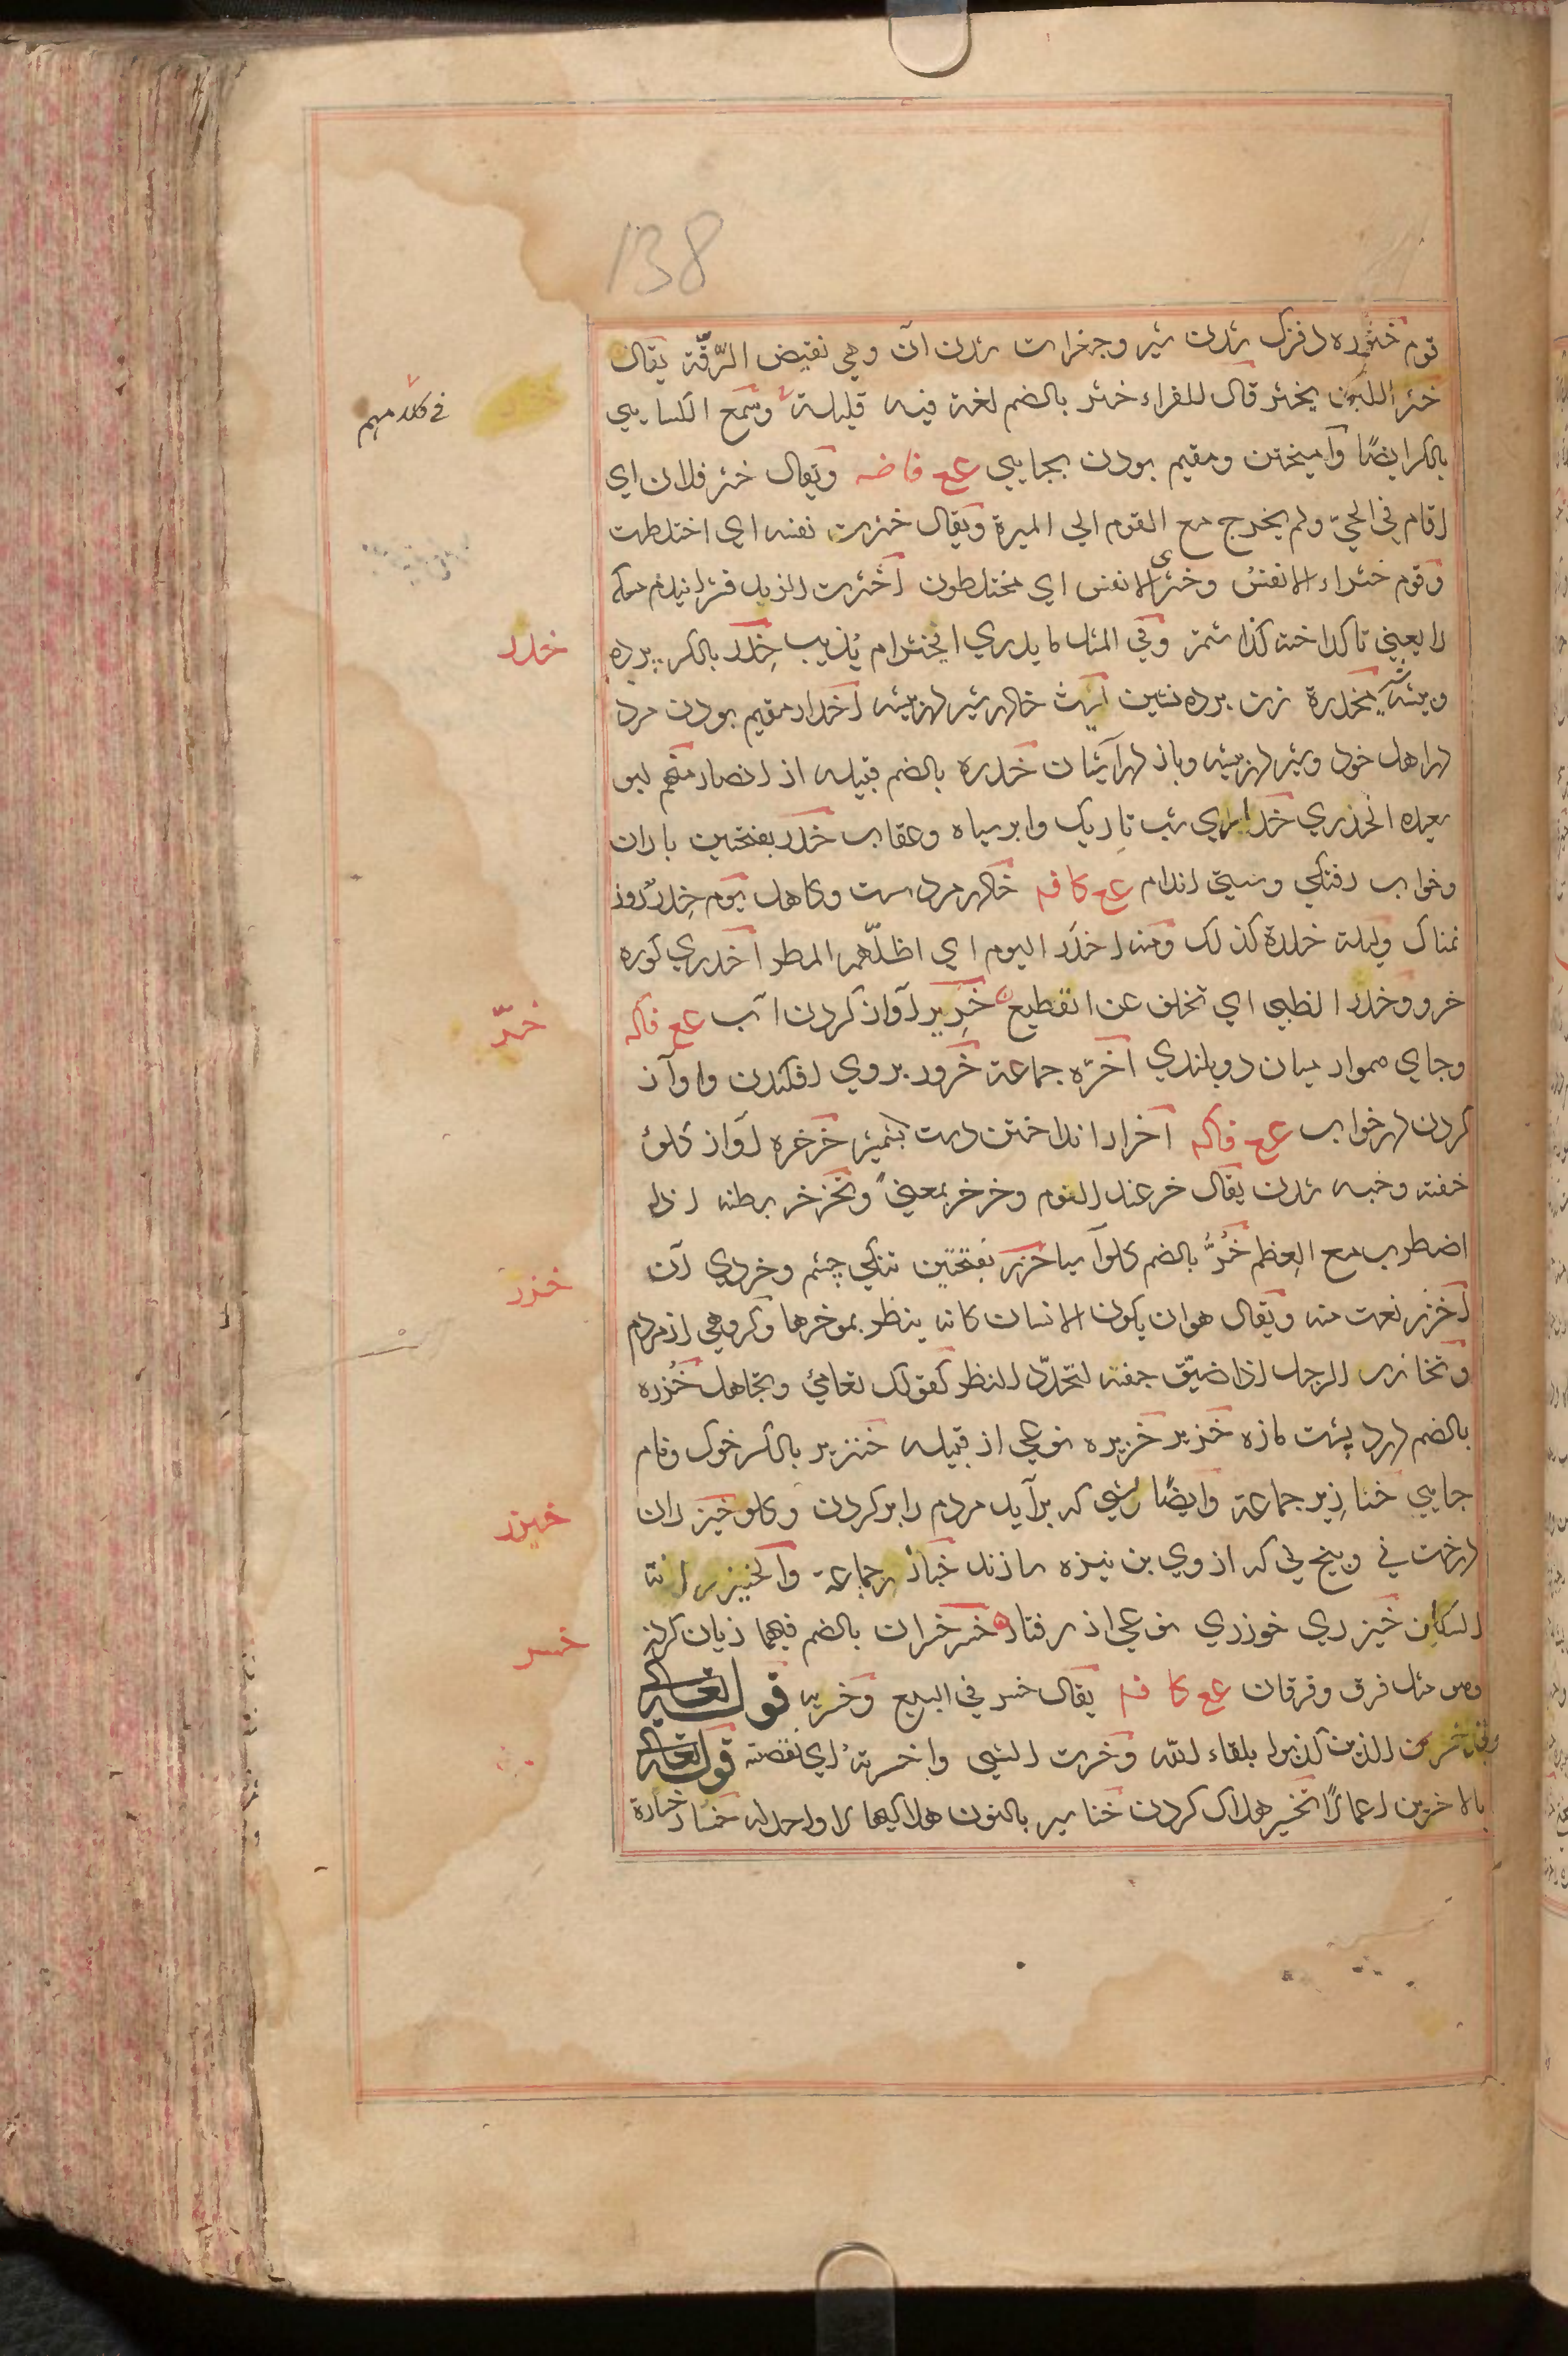 138
قوم خثوره دفزک شدن شیر وجغرات شدن آن وهي نقيض الرّقّة يقال
خثر اللبن يخثر قال للفراء خثر بالضم لغة فيه قليلة وسمع الكسايي
في كلامهم
بالكسر ايضًا وآميختن ومقيم بودن بجايي عع فاضه ويقال خثر فلان اي
اقام في الحيّ ولم يخرج مع القوم الي الميرة ويقال خثرت نفسه اي اختلطت
وقوم خثراء الانفس وخثري الانفس اي مختلطون اخثرت الزبد
را يعني تا كداخته كذاشتمش وفي المثل ما يدري ايخثر ام يذيب خِدر بالكسر پرده
خدر
وبيشه مخدرة زن پرده نشين ليث خادر شير در بيشه اخدار مقيم بودن مرد
در اهل خود وشير در بيشه وباز در آشيان خدره بالضم قبيله از انصار منهم ابو
سعيد الخدري خداري شب تاريك وابر سياه وعقاب خدر بفتحتين باران
وخواب رفتكي وسستي اندام عع كا فه خادر مرد سست وكاهل يوم خدر روز
نمناك وليلة خدرة كذلك ومنه اخدر اليوم اي اظلّهم المطر اخدري كوره
خر ووخدر الظبي اي تخلف عن القطيع خرير آواز كردن آب عع فاكه
خرّ
وجاي هموار ميان دو بلندي اخرّه جماعة خرور بروي افكندن واوآز
كردن در خواب عع فاكه اخرار انداختن دست بشمشير خرخره آواز كلوي
خفته وخبه شدن يقال خر عند النوم وخرخر بمعنيً وتخرخر بطنه اذا
اضطرب مع العِظم خُرُّ بالضم كلو آسيا خزر بفتحتين تنكي چشم وخردي آن
خزر
اخزر نعت منه ويقال هوان يكون الانسان كانه ينظر بموخرها وكروهي از مردم
وتخازر الرجل اذا ضيّق جفنه لتحدّد النظر كقولك تعامي وتجاهل خُزره
بالضم درد پشت مازه خزير خزيره نوعي از قبيله خنزير بالكسر خوك ونام
جايي خنازير جماعة وايضًا ريشي كه بر آيد مردم را بر كردن وكلو خيزران
خيزر
درخت ني وبيخ ني كه از وي بن نيزه سازند خيازر جماعة والخيزرانة
السكان خيزري خوزري نوعي از رفتار خسر خسران بالضم فيهما زيان كردن
خسر
وهو مثل فرق وفرقان عع كا فه يقال خسر في البيع وخسر به قوله تعالي
وقد خسر من الذين كذبوا بلقاء الله وخسرت الشي واخسرته اي نقصته قوله تعالي
بالاخسرين اعمالًا تخسير هلاك كردن خناسير بالنون هلاكيها لا واحد له خسار خسارة